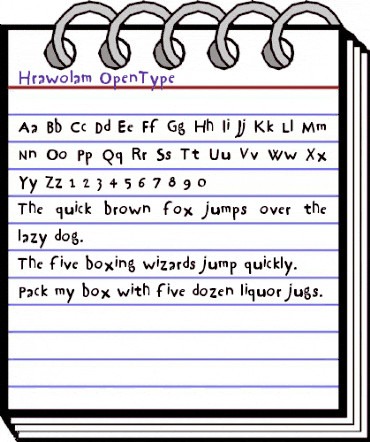 Hrawolam OpenType
Aa Bb Cc Dd Ee Ff Gg Hh Ii Jj Kk Ll Mm
Nn Oo Pp Qq Rr Ss Tt Uu Vv Ww Xx
Yy Zz 1 2 3 4 5 6 7 8 9 0
The quick brown fox jumps over the
lazy dog.
The five boxing wizards jump quickly.
Pack my box with five dozen liquor jugs.